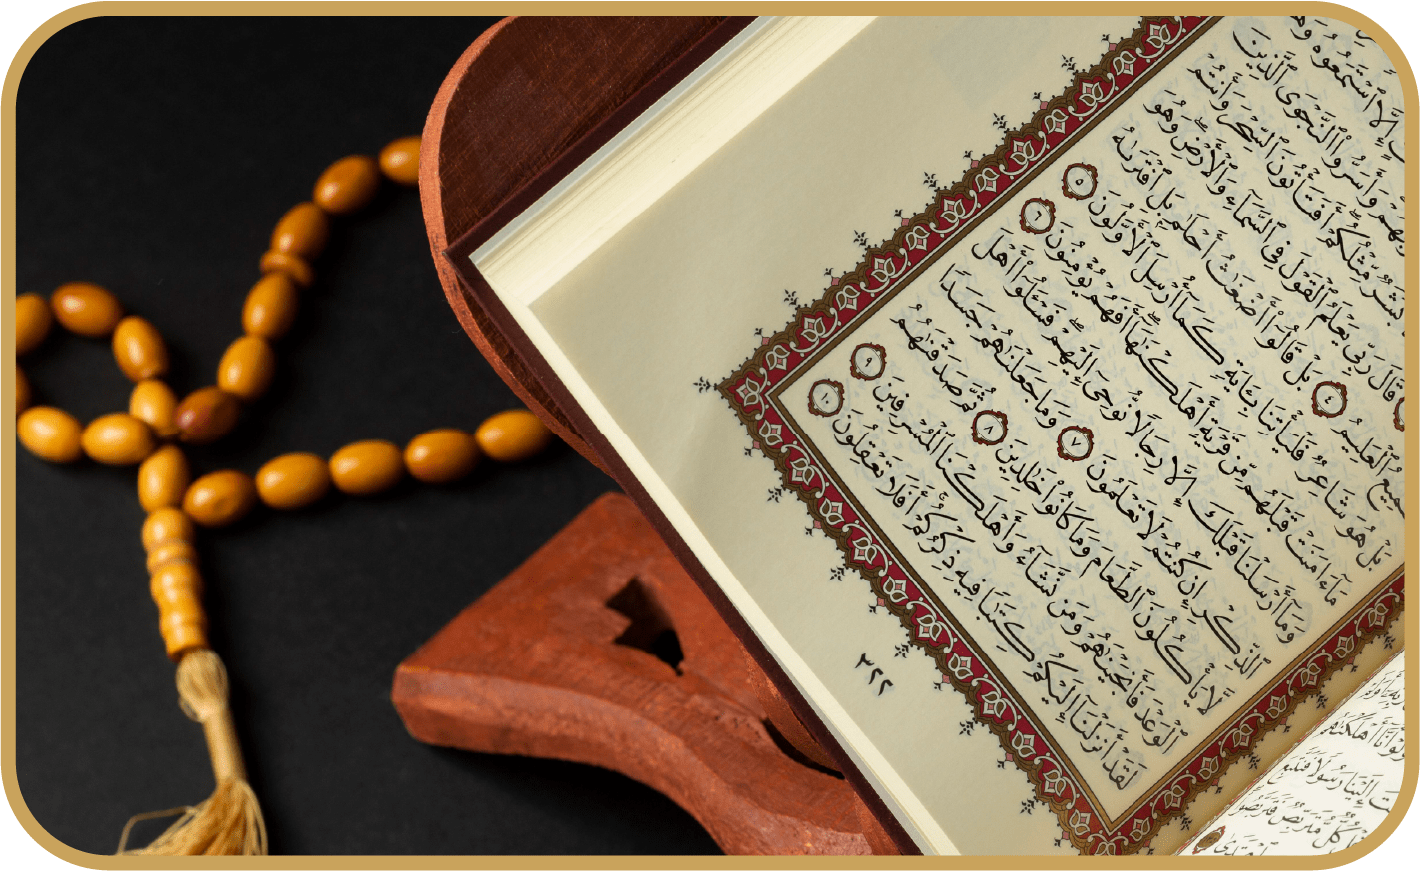 إِلَّا ٱسْتَمَعُوهُ
وَأَسَرُّوا۟ ٱلنَّجْوَى ٱلَّذِينَ
بَشَرٌ مِّثْلُكُمْ أَفَتَأْتُونَ ٱلسِّحْرَ وَأَنتُمْ
قَالَ رَبِّى يَعْلَمُ ٱلْقَوْلَ فِى ٱلسَّمَآءِ وَٱلْأَرْضِ وَهُوَ
ٱلْعَلِيمُ ٤ بَلْ قَالُوٓا۟ أَضْغَٰثُ أَحْلَٰمٍ بَلِ ٱفْتَرَىٰهُ
بَلْ هُوَ شَاعِرٌ فَلْيَأْتِنَا بِـَٔايَةٍ كَمَآ أُرْسِلَ ٱلْأَوَّلُونَ ٥
مَآ ءَامَنَتْ قَبْلَهُم مِّن قَرْيَةٍ أَهْلَكْنَٰهَآ أَفَهُمْ يُؤْمِنُونَ ٦
وَمَآ أَرْسَلْنَا قَبْلَكَ إِلَّا رِجَالًا نُّوحِىٓ إِلَيْهِمْ فَسْـَٔلُوٓا۟ أَهْلَ
ٱلذِّكْرِ إِن كُنتُمْ لَا تَعْلَمُونَ ٧ وَمَا جَعَلْنَٰهُمْ جَسَدًا
لَّا يَأْكُلُونَ ٱلطَّعَامَ وَمَا كَانُوا۟ خَٰلِدِينَ ٨ ثُمَّ صَدَقْنَٰهُمُ
ٱلْوَعْدَ فَأَنجَيْنَٰهُمْ وَمَن نَّشَآءُ وَأَهْلَكْنَا ٱلْمُسْرِفِينَ ٩
لَقَدْ أَنزَلْنَآ إِلَيْكُمْ كِتَٰبًا فِيهِ ذِكْرُكُمْ أَفَلَا تَعْقِلُونَ ١٠
٣٢٢
أَهْلَكْنَٰهُم
إِلَيْنَا رَسُولًا فَنَتَّبِعَ
كُلٌّ مُّتَرَبِّصٌ فَتَرَبَّصُوا۟